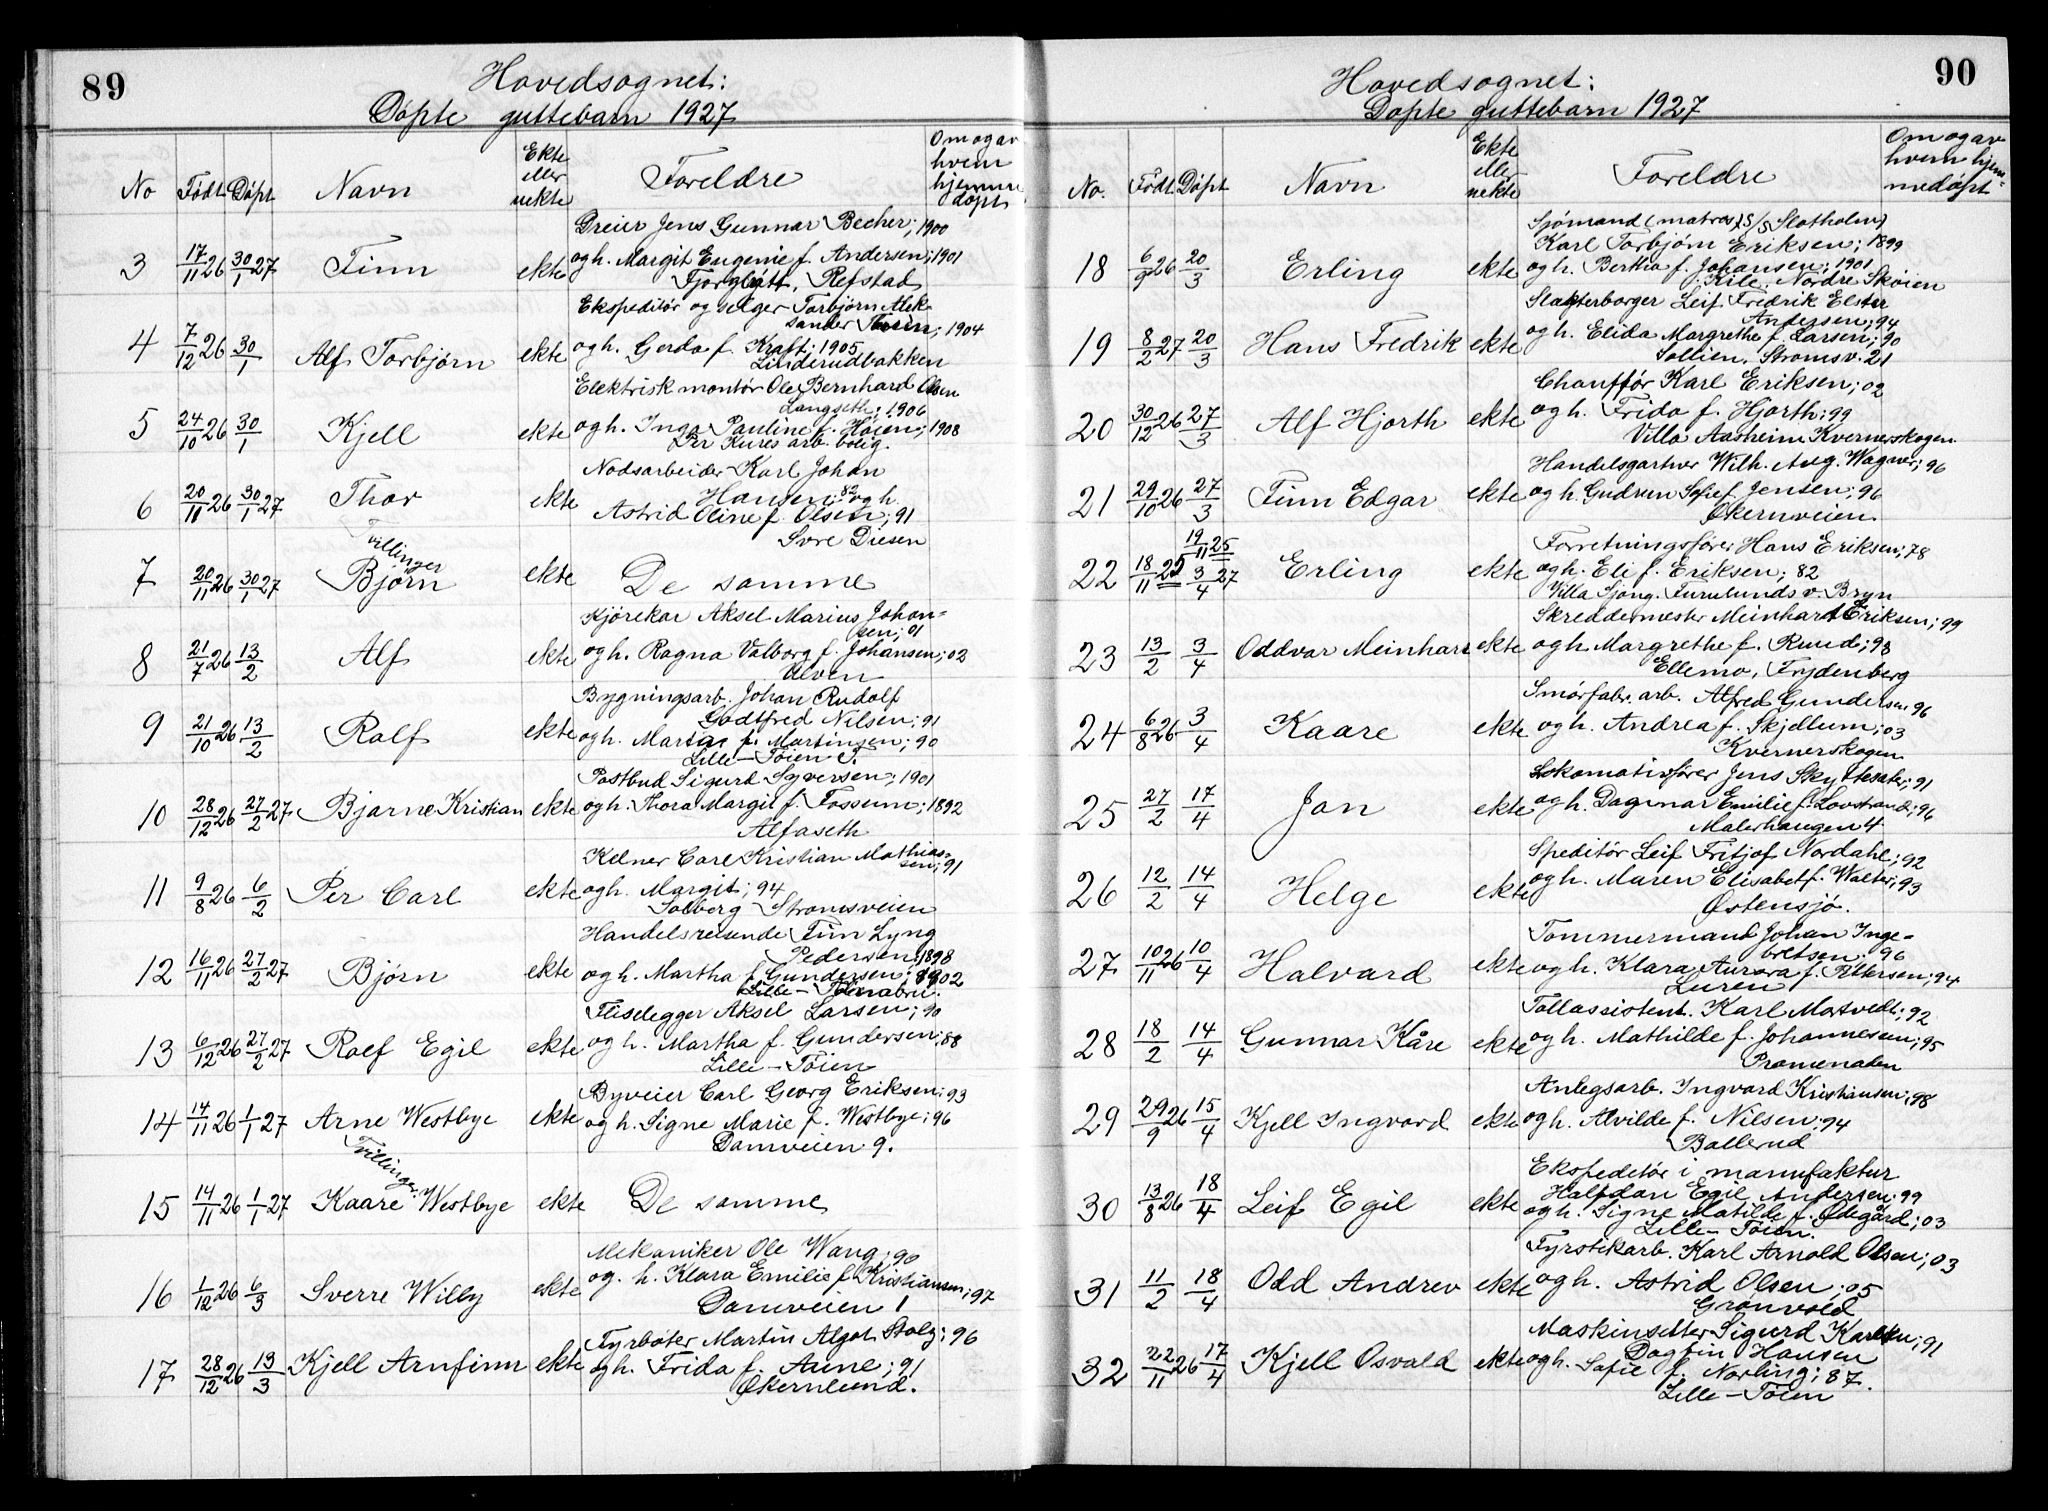 89
Hovedsognet:
Døpte guttebarn 1927
No Født Døpt Navn Ekte eller uekte Foreldre Om og av hvem hjemmedøpt
Dreier Jens Gunnar Becher; 1900
3 17/11 26 30/1 27 Finn ekte og h. Margit Eugenie f. Andersen; 1901
Fjorgløtt, Refstad
Ekspeditør og selger Torbjørn Alek-
sander; 1904
4 7/12 26 30/1 Alf Torbjørn ekte og h. Gerda f. Kraft; 1905
Linderudbakken
Elektrisk montør Ole Bernhard Olsen
Langseth; 1906
5 24/10 26 30/1 Kjell ekte og h. Inga Pauline f. Høien; 1908
Per Kures arb. bolig.
Nodsarbeider Karl Johan
6 20/11 26 30/1 27 Thor ekte Hansen; 82 og h.
Astrid Oline f. Olsen; 91
Svre Diesen
Tvillinger
7 20/11 26 30/1 27 Bjørn ekte De samme
Kjørekar Aksel Marius Johan-
sen; 01
8 21/7 26 13/2 Alf ekte og h. Ragna Valborg f. Johansen; 02
Ulven
Bygningsarb. Johan Rudolf
Godtfred Nilsen; 91
9 21/10 26 13/2 Rolf ekte og h. Marie f. Martinsen; 90
Lille-Tøien
Postbud Sigurd Syversen; 1901
10 28/12 26 27/2 27 Bjarne Kristian ekte og h. Thora Margit f. Fossum; 1892
Alfaseth
Kelner Carl Kristian Mathias-
sen; 91
11 9/8 26 6/2 Per Carl ekte og h. Margit; 94
Solberg Strømsveien
Handelsreisende Finn Lyng
Pedersen 1898
12 16/11 26 27/2 27 Bjørn ekte og h. Martha f. Gundersen; 1902
Lille-
Fliselegger Aksel Larsen; 90
13 6/12 26 27/2 27 Rolf Egil ekte og h. Martha f. Gundersen; 88
Lille-Tøien
Byveier Carl Georg Eriksen; 93
14 14/11 26 1/1 27 Arne Westbye ekte og h. Signe Marie f. Westbye; 96
Damveien 9.
Tvillinger.
15 14/11 26 1/1 27 Kaare Westbye ekte De samme
Mekaniker Ole Wang; 90
16 1/12 26 6/3 Sverre Willy ekte og. h. Klara Emilie f. Kristiansen; 97
Damveien 1
Fyrbøter Martin Algot Stolz; 96
17 28/12 26 13/3 Kjell Arnfinn ekte og h. Frida f. Aune; 91
Økernlund.
90
Hovedsognet:
Døpte guttebarn 1927
No. Født Døpt Navn Ekte eller uekte Foreldre Om og av hvem hjem-
medøpt
Sjømand (matros) S/S Slatholm)
Karl Torbjørn Eriksen; 1899
18 6/9 26 20/3 Erling ekte og h. Bertha f. Johansen; 1901
Kile, Nordre Skøien
Slakterborger Leif Fredrik Elster
Andersen; 94
19 8/2 27 20/3 Hans Fredrik ekte og h. Elida Margrethe f. Larsen; 90
Sollien, Strømsv. 21
Chauffør Karl Eriksen; 02
20 30/12 26 27/3 Alf Hjorth ekte og h. Frida f. Hjorth; 99
Villa Aasheim Kvernerskogen.
Handelsgartner Wilh. Aug. Wagner; 96
21 29/10 26 27/3 Finn Edgar ekte og h. Gudrun Sofie f. Jensen; 96
Økernveien.
19/11 25
Forretningsfører Hans Eriksen; 78
22 18/11 25 3/4 27 Erling ekte og h. Eli f. Eriksen; 82
Villa Sjong. Furulunds v. Bryn
Skreddermester Meinhardt Eriksen; 99
23 13/2 3/4 Oddvar Meinhard ekte og h. Margrethe f. Ruud; 98
Ellemo, Frydenberg
Smørfabr. arb. Alfred Gundersen 96
24 6/8 26 3/4 Kaare ekte og h. Andrea f. Skjellum; 03
Kvernerskogen
Lokomotivfører Jens Skyttesæter; 91
25 27/2 17/4 Jan ekte og h. Dagmar Emilie f. Lovstrand; 96
Malerhaugen 4
Speditør Leif Fritjof Nordahl; 92
26 12/2 14/4 Helge ekte og h. Maren Elisabet f. Walter; 93
Østensjø.
Tømmermand Johan Inge-
bretsen; 96
27 10/11 26 10/4 Halvard ekte og h. Klara Aurora f. Pettersen; 94
Luren
Tollassistent Karl Mortvedt; 92
28 18/2 14/4 Gunnar Kåre ekte og h. Mathilde f. Johannesen; 95
Promenaden
Anlegsarb. Ingvard Kristiansen; 98
29 29/9 26 15/4 Kjell Ingvard ekte og h. Alvilde f. Nilsen; 94
Ballerud
Ekspeditør i manufaktur
Halfdan Egil Andersen; 99
30 13/8 26 18/4 Leif Egil ekte og h. Signe Matilde f. Ødegård; 03
Lille-Tøien.
Fyrstikarb. Karl Arnold Olsen; 03
31 11/2 18/4 Odd Andrev ekte og h. Astrid Olsen; 05
Grønvold
Maskinsetter Sigurd Karlsen; 91
Dagfin Hansen
32 22/11 26 17/4 Kjell Osvald ekte og h. Sofie f. Norling; 87.
Lille-Tøien